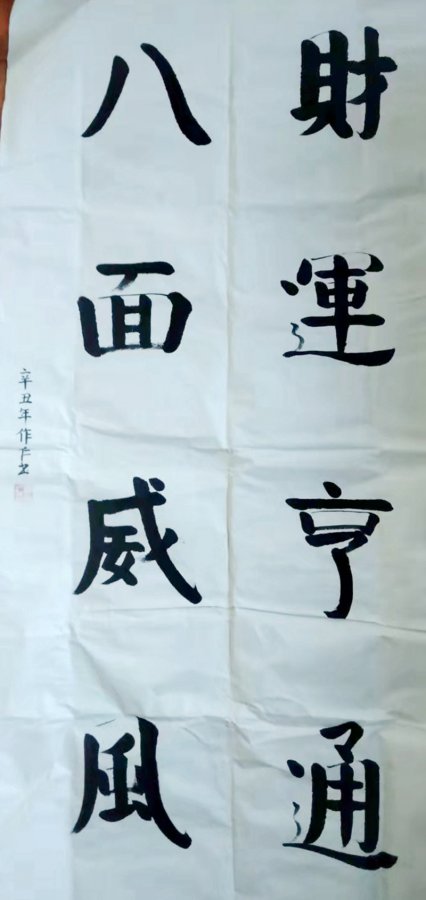 財運亨通
八面威風
辛丑年作仁书